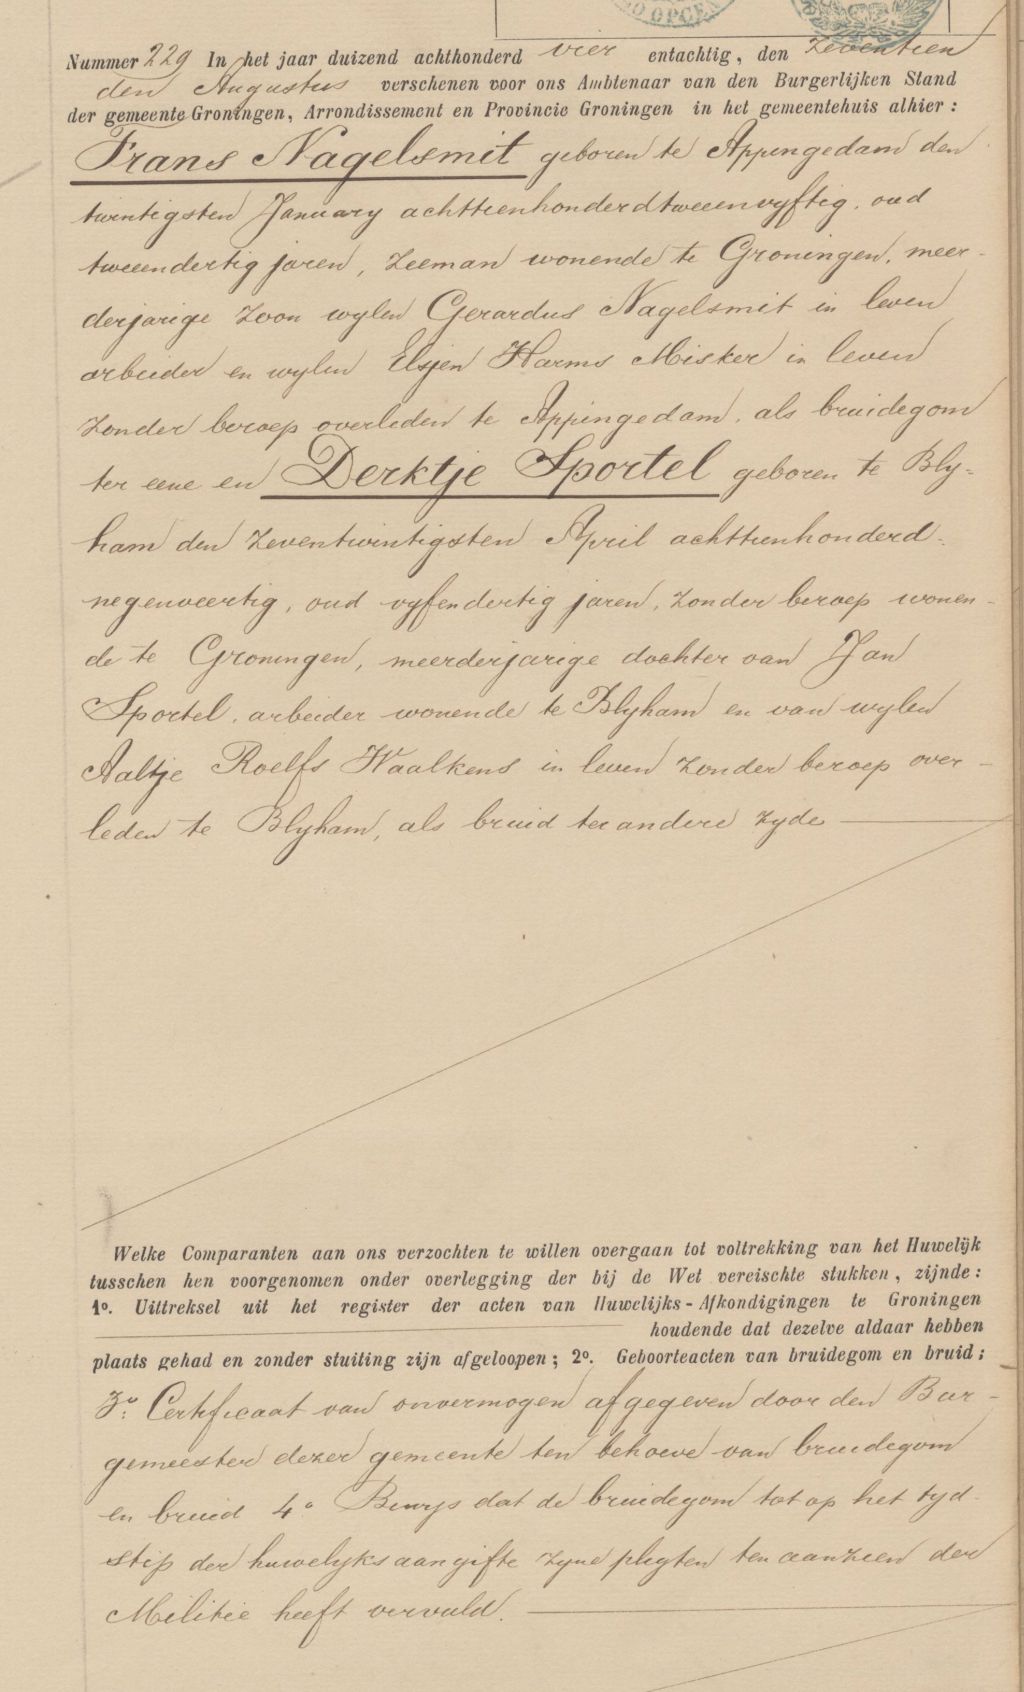 DO OPCEN
Nummer 229 In het jaar duizend achthonderd vier entachtig, den zeventien
den Augustus verschenen voor ons Ambtenaar van den Burgerlijken Stand
der gemeente Groningen, Arrondissement en Provincie Groningen in het gemeentehuis alhier:
Frans Nagelsmit geboren te Appingedam den
twintigsten January achttienhonderdtweeenvyftig, oud
tweeendertig jaren, Zeeman wonende te Groningen, meer-
derjarige zoon wylen Gerardus Nagelsmit in leven
arbeider en wylen Elsjen Harms Misker in leven
zonder beroep overleden te Appingedam, als bruidegom
ter eene en Derktje Sportel geboren te Bly-
ham den zeventwintigsten April achttienhonderd-
negenveertig, oud vyfendertig jaren, zonder beroep wonen-
de te Groningen, meerderjarige dochter van Jan
Sportel, arbeider wonende te Blyham en van wylen
Aaltje Roelfs Waalkens in leven zonder beroep over-
leden te Blyham, als bruid ter andere zyde
Welke Comparanten aan ons verzochten te willen overgaan tot voltrekking van het Huwelijk
tusschen hen voorgenomen onder overlegging der bij de Wet vereischte stukken, zijnde:
1o. Uittreksel uit het register der acten van Huwelijks-Afkondigingen te Groningen
houdende dat dezelve aldaar hebben
plaats gehad en zonder stuiting zijn afgeloopen; 2o. Geboorteacten van bruidegom en bruid;
3o: Certificaat van onvermogen afgegeven door den Bur-
gemeester dezer gemeente ten behoeve van bruidegom
en bruid 4o Bewys dat de bruidegom tot op het tyd-
stip der huwelyksaangifte zyne plegten ten aanzien der
Militie heeft vervuld.